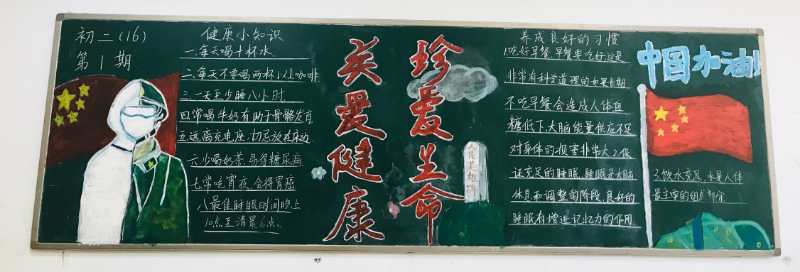 初二(16)
第1期
健康小知识
一.每天喝十杯水
二.每天不要喝两杯以上咖啡
三.一天至少睡八小时
四常喝牛奶有助于骨骼发育
五远离充电座,切忌放在床边
六少喝奶茶 易得糖尿病
七常吃宵夜,会得胃癌
八最佳睡眠时间晚上
10点至清晨6点.
关爱健康
珍爱生命
养成良好的习惯
1.吃好早餐,早餐要吃好这是
非常有科学道理的如果长期
不吃早餐会造成人体血
糖低下,大脑能量供应不足
对身体的损害非常大2.保
证充足的睡眠,睡眠是大脑
休息和调整的阶段,良好的
睡眠有增进记忆力的作用
中国加油!
3.饮水充足,水是人体
最主要的组成部分